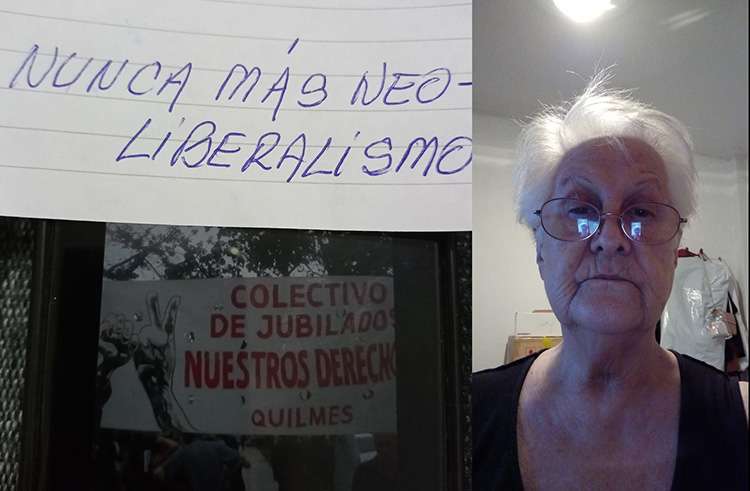 NUNCA MÁS NEO-
LIBERALISMO
COLECTIVO
DE JUBILADOS
NUESTROS DERECHO
QUILMES